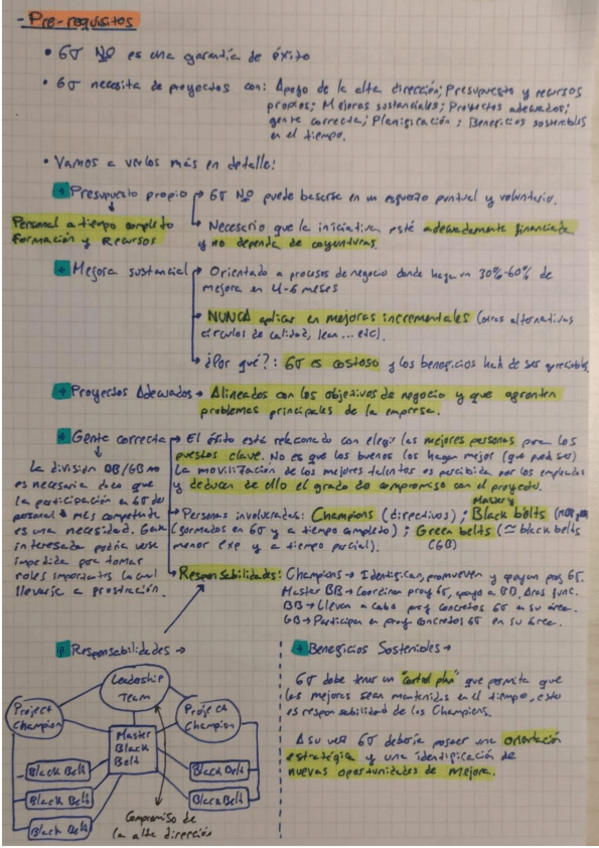 - Pre-requisitos
• 6σ NO es una garantía de éxito
• 6σ necesita de proyectos con: Apoyo de la alta dirección; Presupuesto y recursos
propios; Mejoras sustanciales; Proyectos adecuados;
gente correcta; Planificación; Beneficios sostenibles
en el tiempo.
• Vamos a verlos más en detalle:
+ Presupuesto propio → 6σ NO puede basarse en un esfuerzo puntual y voluntario.
Personal a tiempo completo
Formación y Recursos
→ Necesario que la iniciativa esté adecuadamente financiada
y no dependa de coyunturas.
+ Mejora sustancial → Orientado a procesos de negocio donde haya un 30%-60% de
mejora en 4-6 meses
→ NUNCA aplicar en mejoras incrementales (otras alternativas
círculos de calidad, lean... etc).
→ ¿Por qué?: 6σ es costoso y los beneficios han de ser apreciables.
+ Proyectos Adecuados → Alineados con los objetivos de negocio y que afronten
problemas principales de la empresa.
+ Gente correcta → El éxito está relacionado con elegir las mejores personas para los
puestos clave. No es que los buenos los hagan mejor (que puede ser)
La movilización de los mejores talentos es percibida por los empleados
y deducen de ello el grado de compromiso con el proyecto.
La división BB/GB no
es necesaria dado que
la participación a 6σ del
personal + más competente
es una necesidad. Gente
interesada podría verse
impedida por tomar
roles importantes lo cual
llevaría a frustración.
→ Personas involucradas: Champions (directivos); Master Black belts
(formados en 6σ y a tiempo completo); Green belts (≃ black belts
menor exp y a tiempo parcial). (GB)
→ Responsabilidades: Champions → Identifican, promueven y apoyan proy 6σ.
Master BB → Coordinan proy 6σ, apoyo a BB, Áreas func.
BB → Llevan a cabo proy concretos 6σ en su área.
GB → Participan en proy concretos 6σ en su área.
+ Responsabilidades →
Leadership
Team
Project
Champion
Project
Champion
Master
Black
Belt
Black Belt
Black Belt
Black Belt
Black Belt
Black Belt
Compromiso de
la alta dirección
+ Beneficios Sostenibles →
6σ debe tener un "control plan" que permita que
las mejoras sean mantenidas en el tiempo, esto
es responsabilidad de los Champions.
A su vez 6σ debería poseer una orientación
estratégica y una identificación de
nuevas oportunidades de mejora.